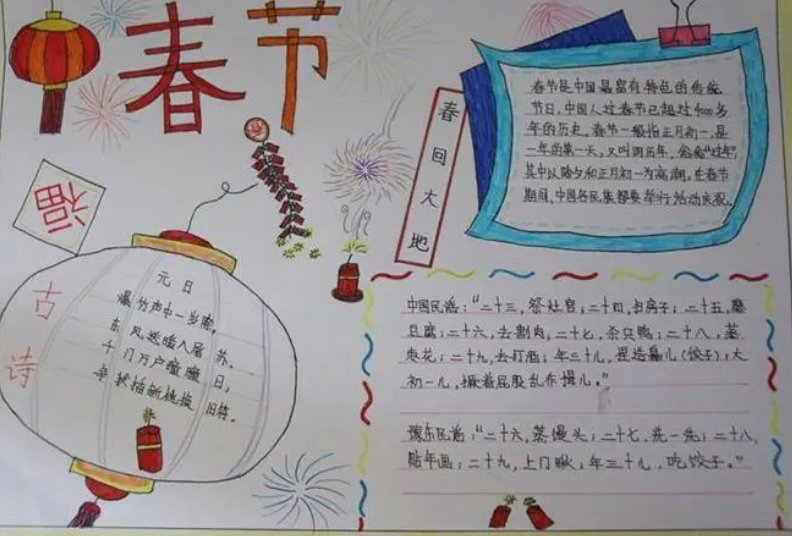 春节
春节是中国最富有特色的传统
节日,中国人过春节已超过4000多
年的历史,春节一般指正月初一,是
一年的第一天,又叫阴历年,俗称“过年”,
其中以除夕和正月初一为高潮,在春节
期间,中国各民族都要举行活动庆祝。
春回大地
福
古诗
元日
爆竹声中一岁除,
东风送暖入屠苏,
千门万户曈曈日,
争 新桃换旧符。
中国民谣:“二十三,祭灶官;二十四,扫房子;二十五,磨
豆腐;二十六,去割肉;二十七,杀只鸭;二十八,蒸
枣花;二十九,去打酒;年三十儿,捏造鼻儿(饺子);大
初一儿,撅着屁股乱作揖儿。”
豫东民谣:“二十六,蒸馒头;二十七,洗一洗;二十八,
贴年画;二十九,上门瞅;年三十儿,吃饺子。”